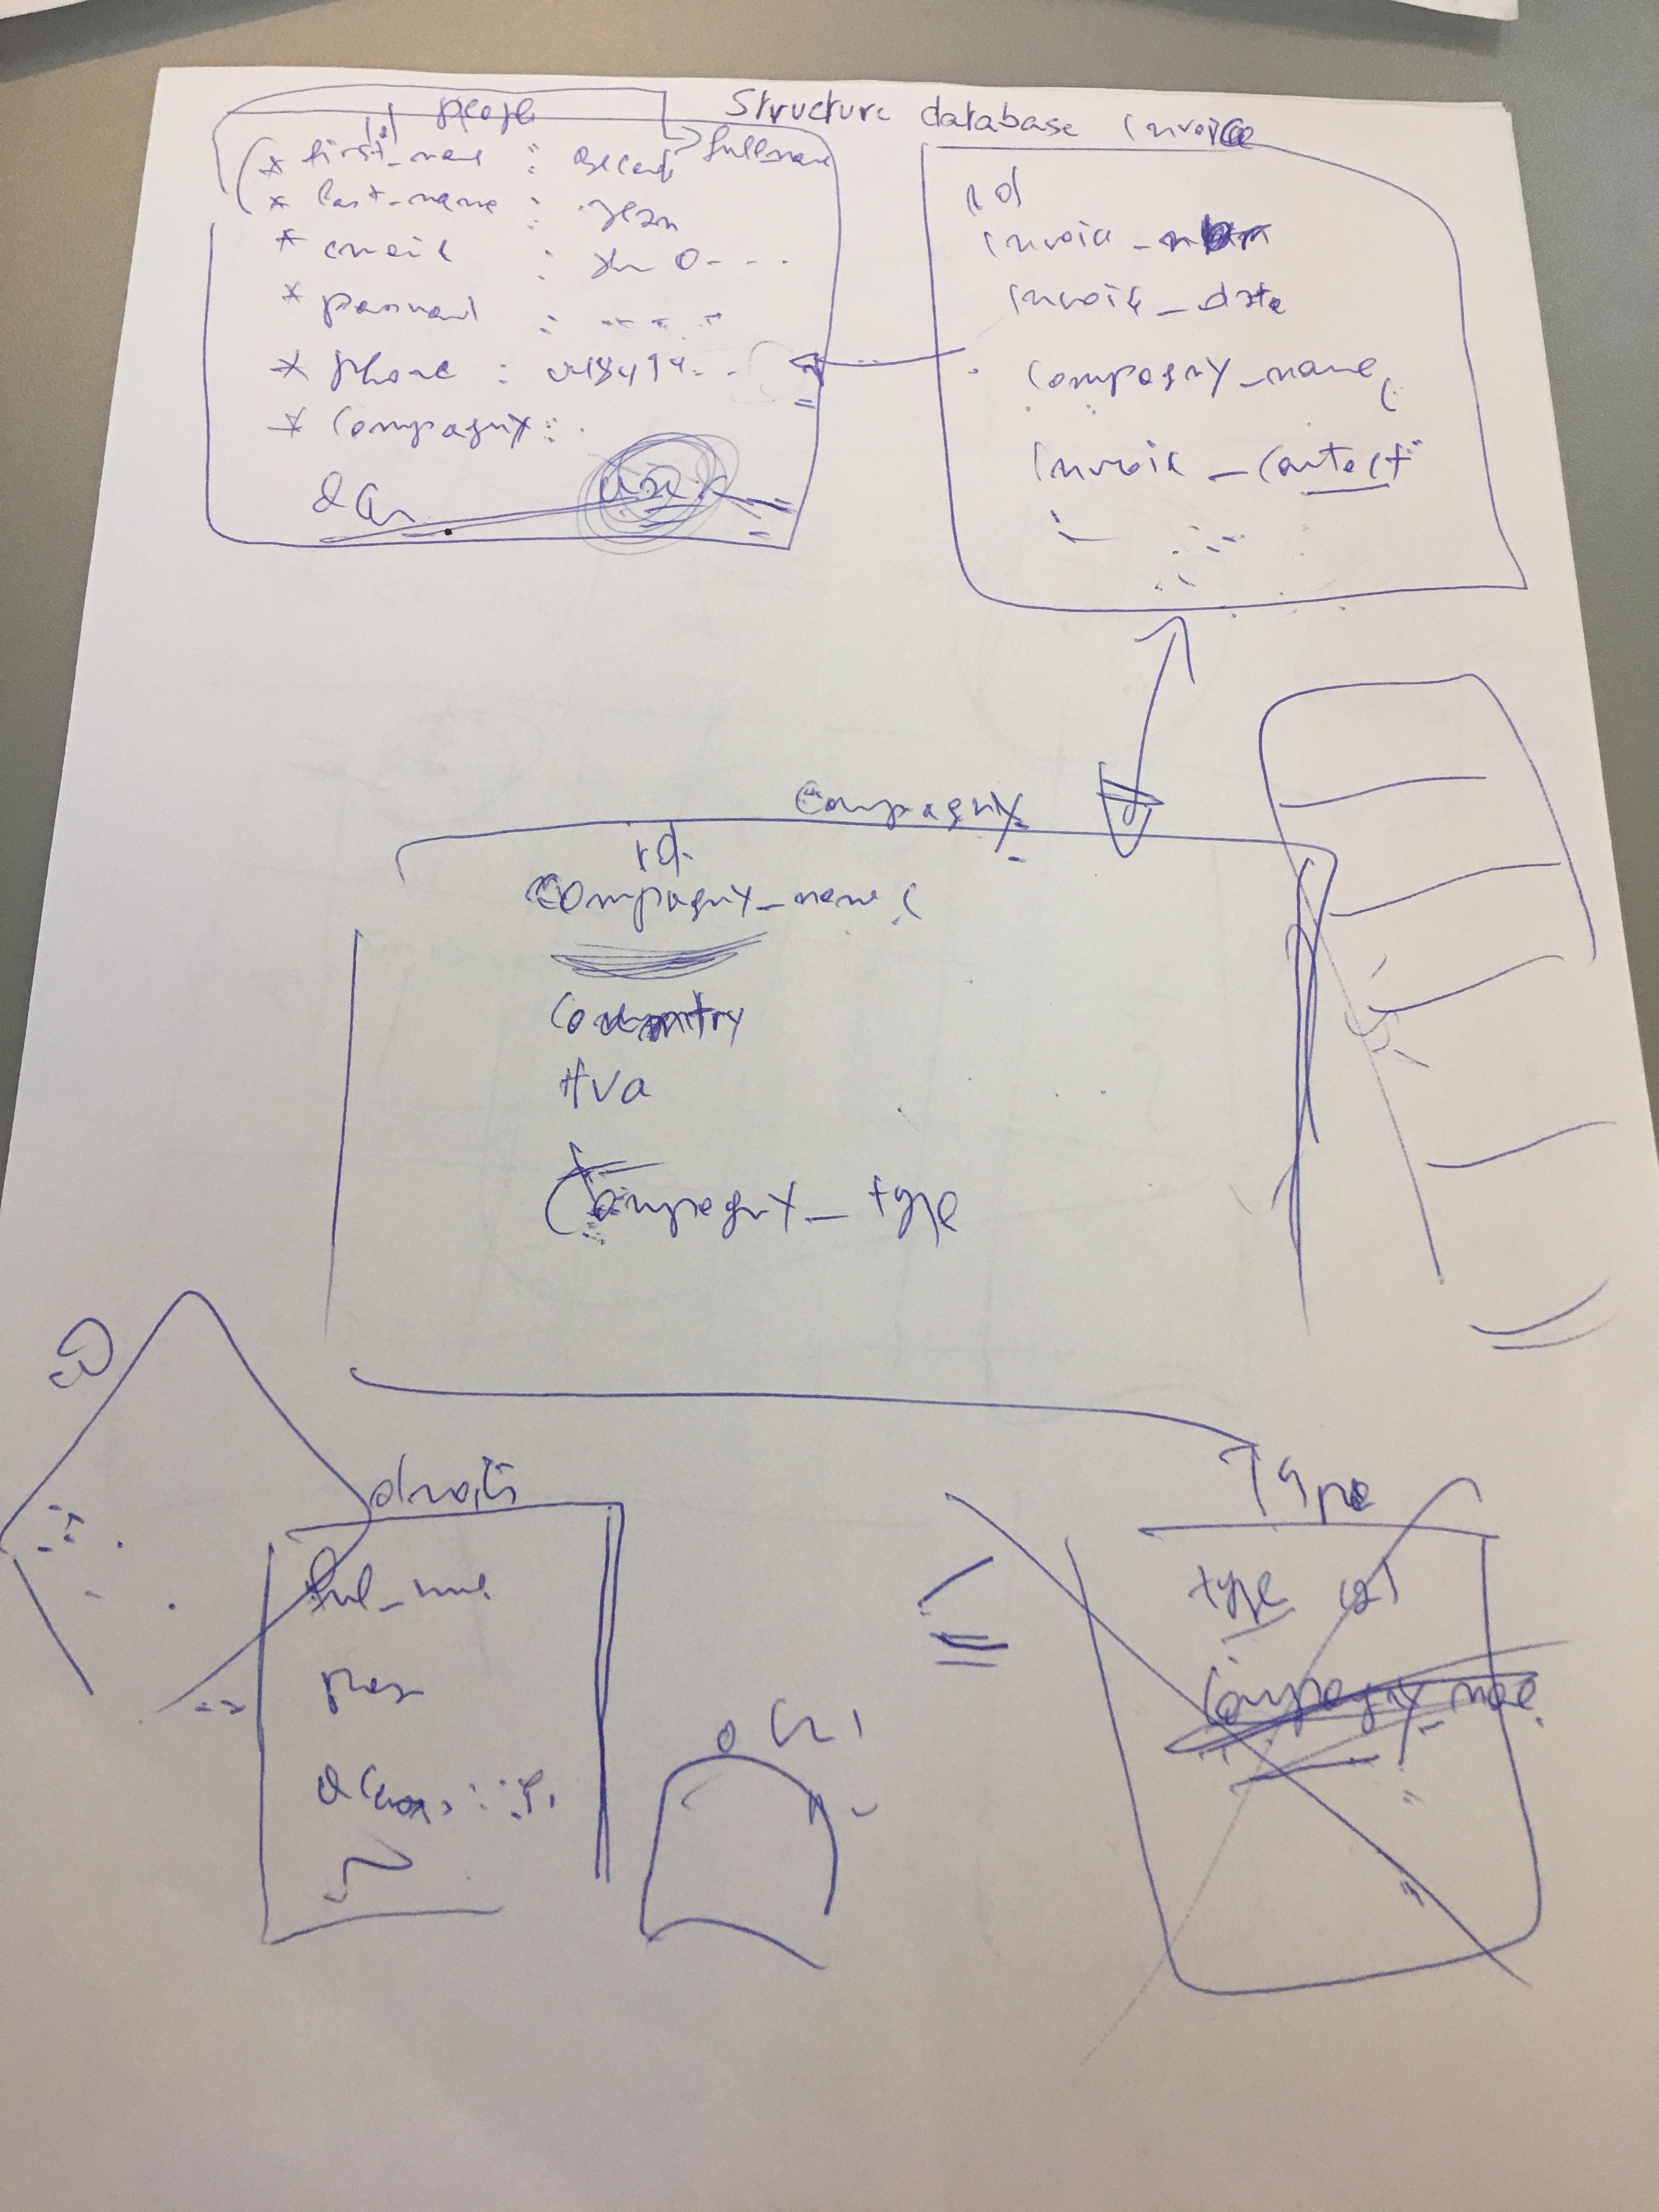 Structure database invoice
people
id
* first_name : fullname
* last_name : jean
* email :
* password :
* phone : 048414..
* Compagny :
id
invoice_nbr
invoice_date
compagny_name
invoice_contact
Compagny
id
Compagny_name
Country
tva
Compagny_type
droits
full_name
pass
Type
type id
Compagny_name